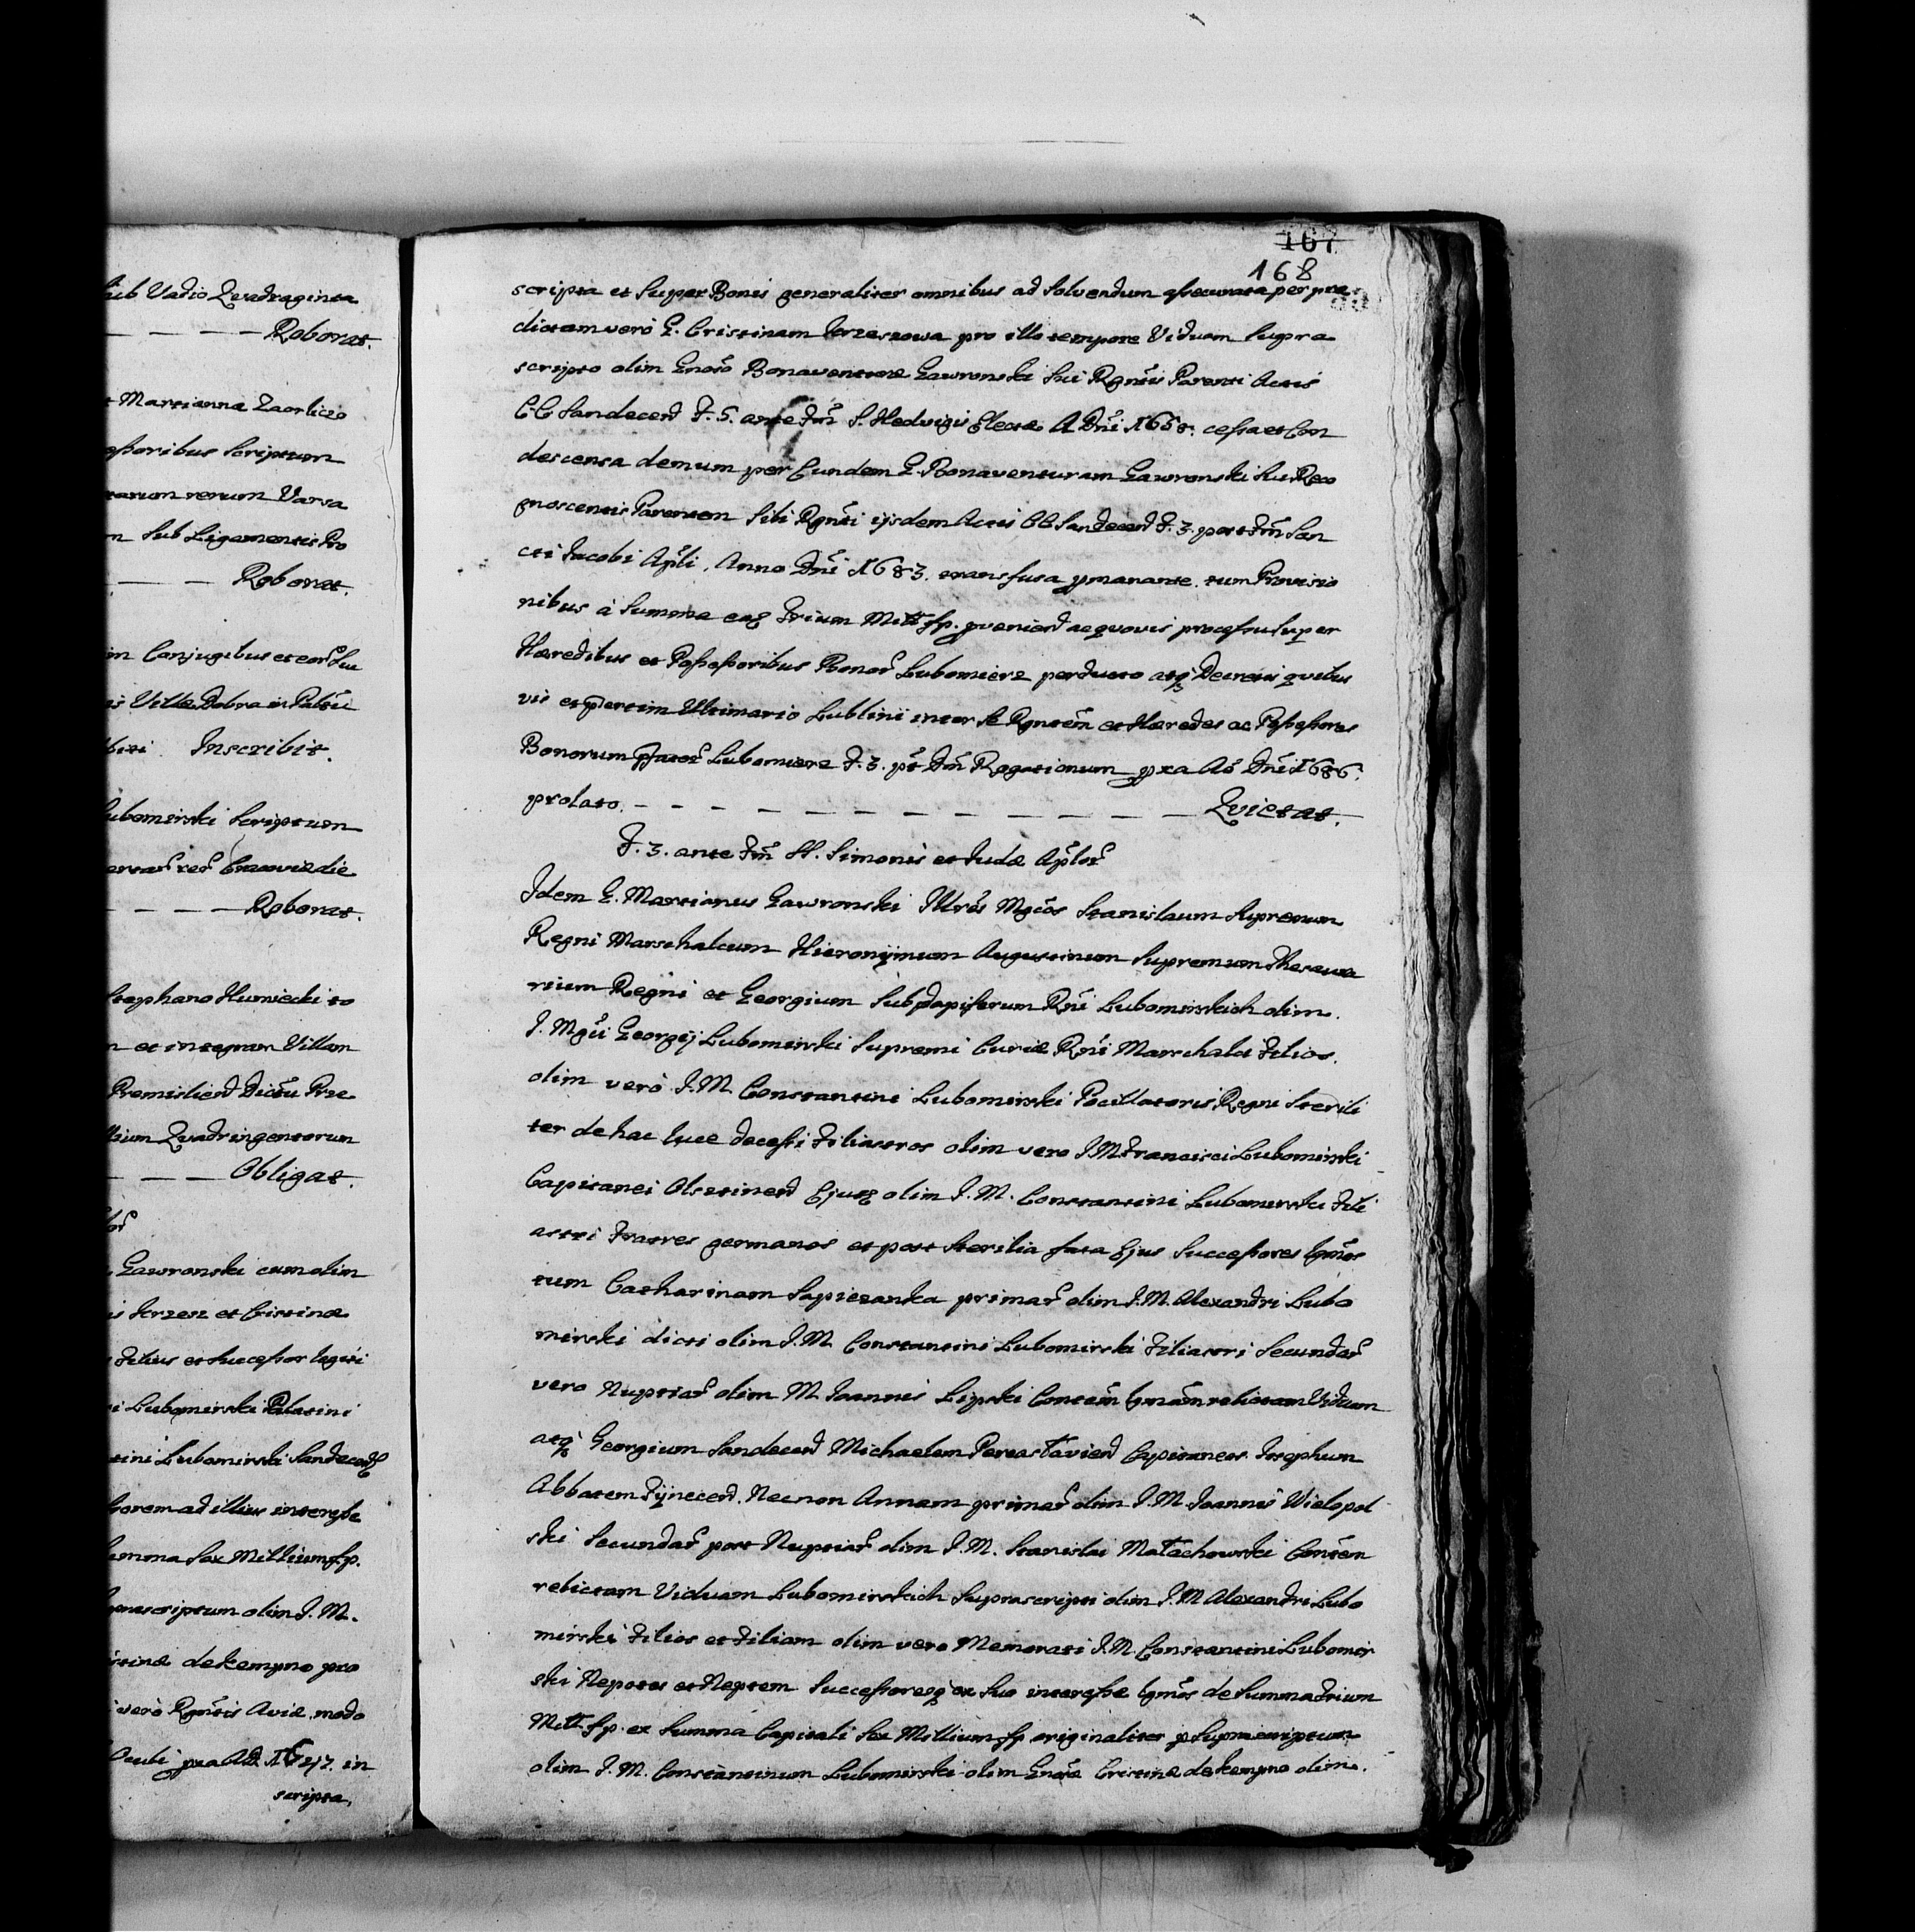 sub Vadio Quadraginta
Roborat.
Martianna Zaorlicio
ssoribus Scriptum
rarum rerum Varsa
n Sub Ligamentis Pro
Roborat.
in Conjugibus et eor Su
is Villae Dobra in Paltu
biti Inscribit.
ubomirski Scriptum
ervar rer Cracoviae die
Roborat.
Stephano Humiecki to
n et integram Villam
Premislien Dictu Prae
llium Quadringentorum
Obligat.
lor
Gawronski cum olim
is Jerzesz et Cristinae
Filius et Successor legiti
i Lubomirski Palatini
tini Lubomirski Sandecen
torem ad illius interesse
Summa Sex Millium fp.
prascriptum olim J. M.
istinae de Kempno pro
vero Rgntis Aviae modo
Oculi pxa AD. 1647. in
scripta,
167
168
scripta et Super Bonis generaliter omnibus ad Solvendum assecurata per prae
dictam verò G. Cristinam Jerzeszowa pro illo tempore Viduam Supra
scripto olim Gnoso Bonaventurae Gawronski Sui Rgntis Parenti Actis
CC Sandecen F. 5. ante Fm S. Hedvigis Electae A Dni 1658. cessa et Con
descensa demum per Eundem G. Bonaventuram Gawronski Sui Reco
gnoscentis Parentem Sibi Rgnti ijsdem Actis CC Sandecen F. 3. post Fm San
cti Jacobi Apli, Anno Dni 1683. transfusa pmanante tum Provisio
nibus à Summa eaq Trium Mill fp. pvenien ac quovis processu Super
Haeredibus et Possessoribus Bonor Lubomierz perducto atq Decretis quibus
vis et ptertim Ultimario Lublini inter Se Rgntem et Haeredes ac Possessores
Bonorum pfator Lubomierz F. 3. pt Fm Rogationum pxa Ao Dni 1686.
prolato. Quietat.
F. 3. ante Fm SS. Simonis et Judae Aplor
Idem G. Martianus Gawronski Illres Mgcos Stanislaum Supremum
Regni Marschalcum Hieronijmum Augustinum Supremum Thesaura
rium Regni et Georgium Subdapiferum Rni Lubomirskich olim
J. Mgci Georgij Lubomirski Supremi Curiae Rni Marschalci Filios
olim verò J. M. Constantini Lubomirski Pocillatoris Regni Sterili
ter de hac luce decessi Filiastros olim vero J. M. Francisci Lubomirski
Capitanei Olsztinen Ejusq olim J. M. Constantini Lubomirski Fili
astri Fratres germanos et post Sterilia fata Ejus Successores lgmos
tum Catharinam Sapiezanka primar olim J. M. Alexandri Lubo
mirski dicti olim J. M. Constantini Lubomirski Filiastri Secundar
vero Nuptiar olim M. Joannis Lipski Contem lgmam relictam Viduam
atq Georgium Sandecen Michaelem Pereasłavien Capitaneos Josephum
Abbatem Tijnecen. Necnon Annam primar olim J. M. Joannis Wielopol
ski Secundar post Nuptiar olim J. M. Stanislai Małachowski Contem
relictam Viduam Lubomirskich Suprascripti olim J. M Alexandri Lubo
mirski Filios et Filiam olim vero Memorati J. M. Constantini Lubomir
ski Nepotes et Neptem Successoresq ex Suo interesse lgmos de Summa Trium
Mill. fp. ex Summa Capitali Sex Millium fp originaliter p Suprascriptum
olim J. M. Constantinum Lubomirski olim Gnosae Cristinae de Kempno olim